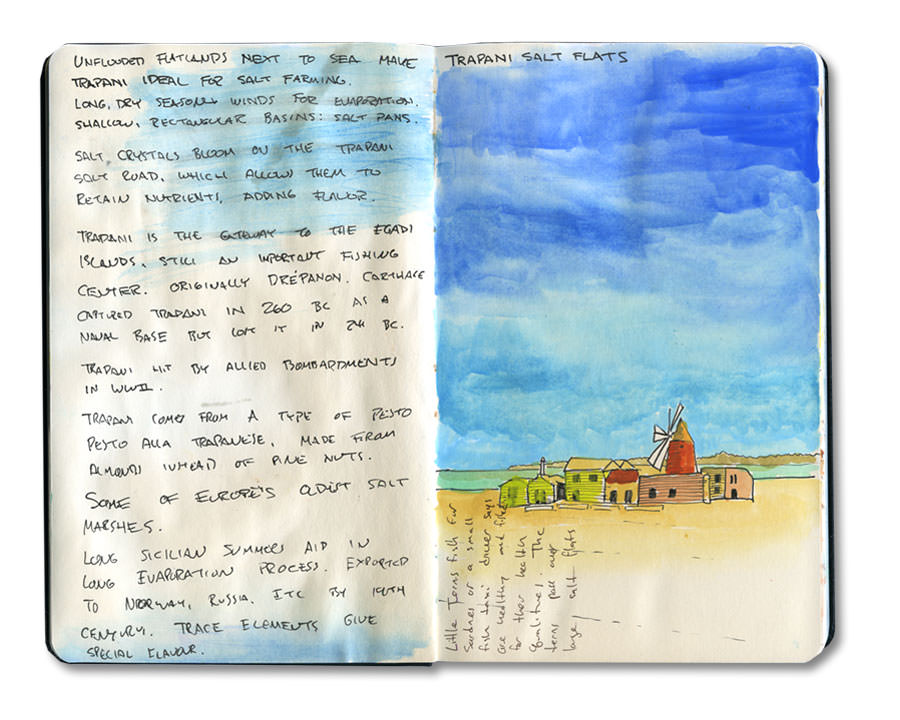 UNFLOODED FLATLANDS NEXT TO SEA MAKE
TRAPANI IDEAL FOR SALT FARMING.
LONG, DRY SEASON + WINDS FOR EVAPORATION.
SHALLOW, RECTANGULAR BASINS: SALT PANS.
SALT CRYSTALS BLOOM ON THE TRAPANI
SALT ROAD, WHICH ALLOWS THEM TO
RETAIN NUTRIENTS, ADDING FLAVOR.
TRAPANI IS THE GATEWAY TO THE EGADI
ISLANDS, STILL AN IMPORTANT FISHING
CENTER. ORIGINALLY DRÉPANON. CARTHAGE
CAPTURED TRAPANI IN 260 BC AS A
NAVAL BASE BUT LOST IT IN 241 BC.
TRAPANI HIT BY ALLIED BOMBARDMENTS
IN WWII.
TRAPANI COMES FROM A TYPE OF PESTO
PESTO ALLA TRAPANESE, MADE FROM
ALMONDS INSTEAD OF PINE NUTS.
SOME OF EUROPE'S OLDEST SALT
MARSHES.
LONG SICILIAN SUMMERS AID IN
LONG EVAPORATION PROCESS. EXPORTED
TO NORWAY, RUSSIA. ETC BY
CENTURY. TRACE ELEMENTS GIVE
SPECIAL FLAVOUR.
TRAPANI SALT FLATS
Little Terns fish for
Sardines or a small
fish taxi driver says
are healthy and fished
for their health
qualities. The
terns patrol over
large salt flats